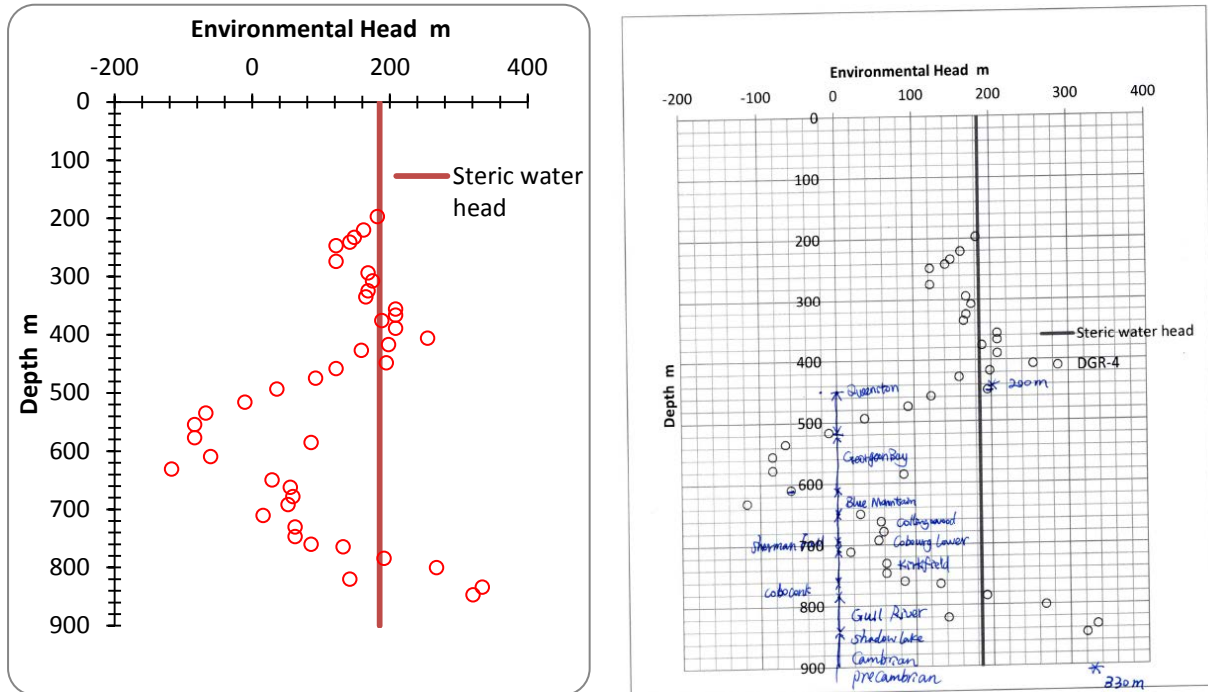 Environmental Head m
-200 0 200 400
0
100
200
300
400
500
600
700
800
900
Depth m
Steric water
head
Environmental Head m
-200 -100 0 100 200 300 400
0
100
200
300
400
500
600
700
800
900
Depth m
Steric water head
DGR-4
200m
Queenston
Georgian Bay
Blue Mountain
Collingwood
Cobourg Lower
Sherman
Kirkfield
Coboconk
Gull River
Shadow lake
Cambrian
precambrian
330m